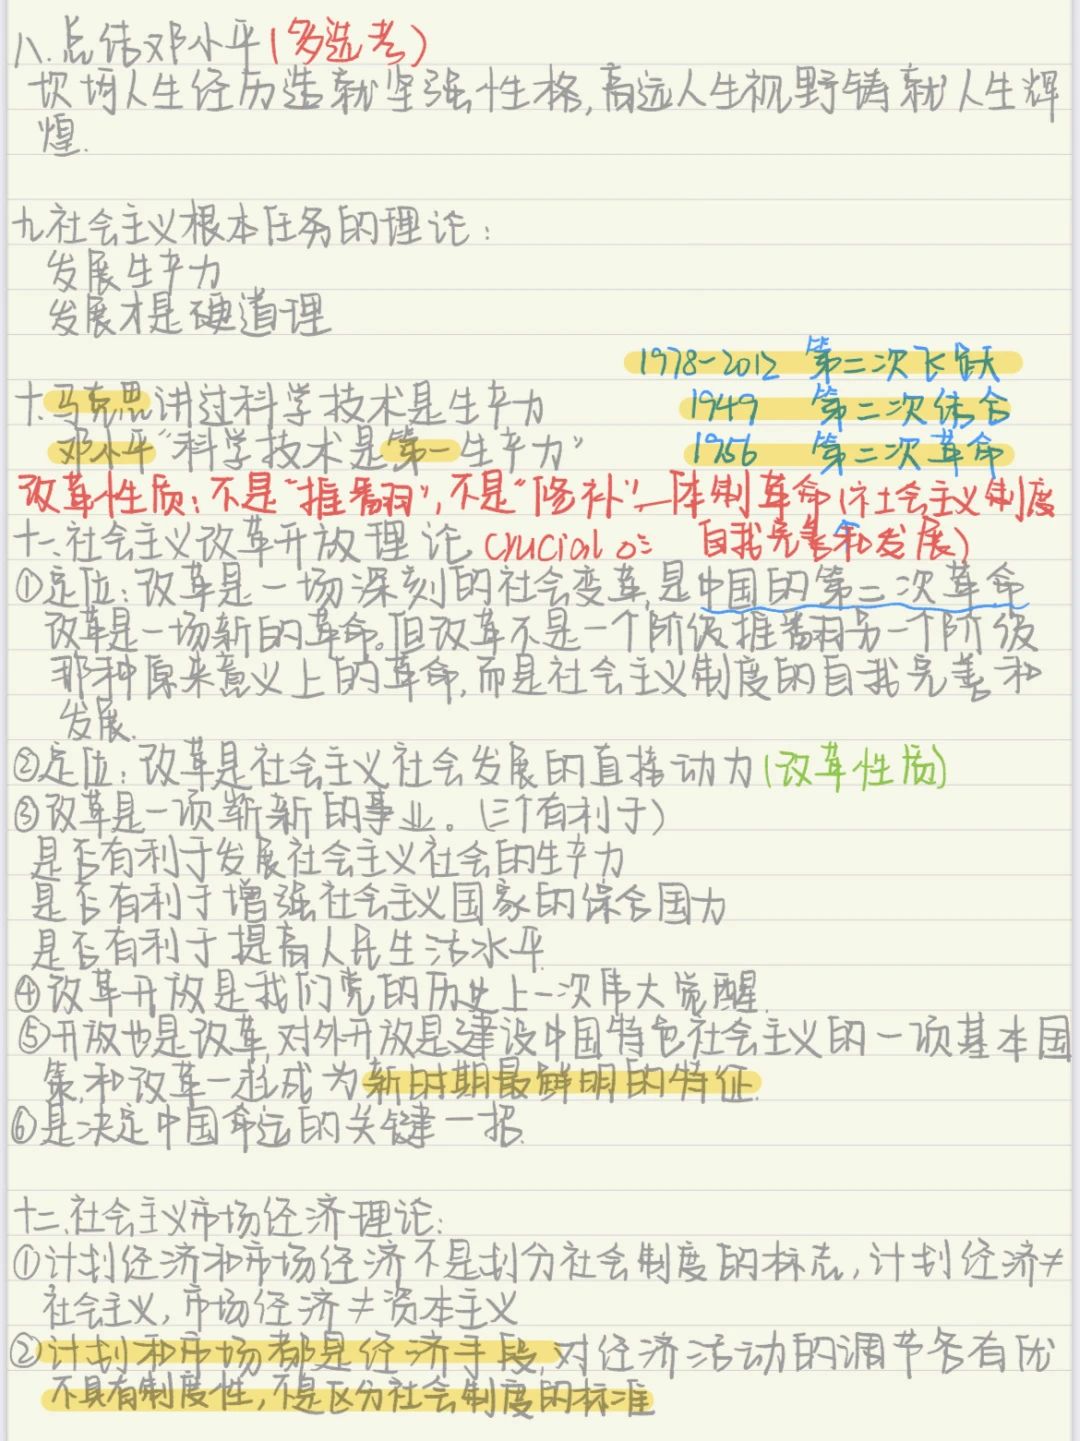 八.总结邓小平(多选考)
坎坷人生经历造就坚强性格,高远人生视野铸就人生辉
煌.
九.社会主义根本任务的理论:
发展生产力
发展才是硬道理
1978-2012 第二次飞跃
十.马克思讲过科学技术是生产力
1949 第二次结合
邓小平“科学技术是第一生产力”
1956 第二次革命
改革性质:不是“推翻”,不是“修补”—体制革命(社会主义制度
自我完善和发展)
十一.社会主义改革开放理论 crucial o:
①定位:改革是一场深刻的社会变革,是中国的第二次革命
改革是一场新的革命。但改革不是一个阶级推翻另一个阶级
那种原来意义上的革命,而是社会主义制度的自我完善和
发展.
②定位:改革是社会主义社会发展的直接动力(改革性质)
③改革是一项崭新的事业。(三个有利于)
是否有利于发展社会主义社会的生产力
是否有利于增强社会主义国家的综合国力
是否有利于提高人民生活水平.
④改革开放是我们党的历史上一次伟大觉醒.
⑤开放也是改革,对外开放是建设中国特色社会主义的一项基本国
策,和改革一起成为新时期最鲜明的特征.
⑥是决定中国命运的关键一招.
十二.社会主义市场经济理论:
①计划经济和市场经济不是划分社会制度的标志,计划经济≠
社会主义,市场经济≠资本主义
②计划和市场都是经济手段,对经济活动的调节各有优
不具有制度性,不是区分社会制度的标准